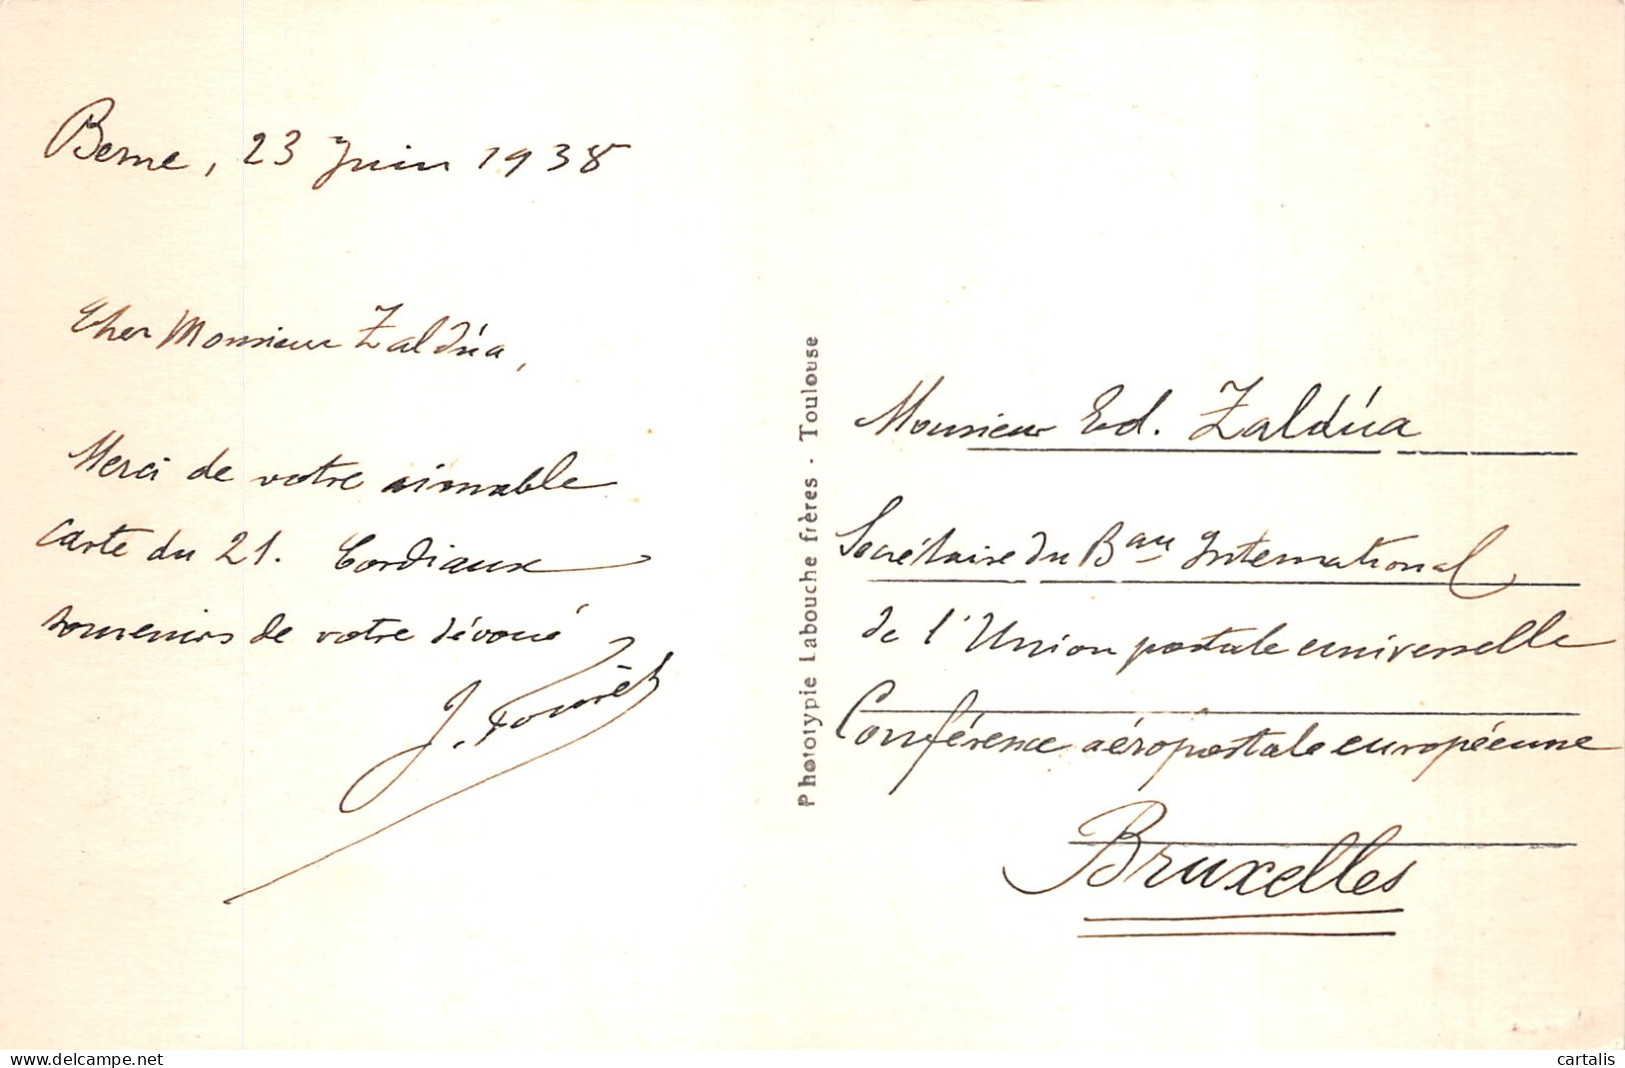 Berne, 23 Juin 1938
Cher Monsieur Zaldúa,
Merci de votre aimable
carte du 21. Cordiaux
souvenirs de votre dévoué
J.
Phototypie Labouche frères - Toulouse
Monsieur Ed. Zaldúa
Secrétaire du Bau International
de l'Union postale universelle
Conférence aéropostale européenne
Bruxelles
delcampe.net
cartalis